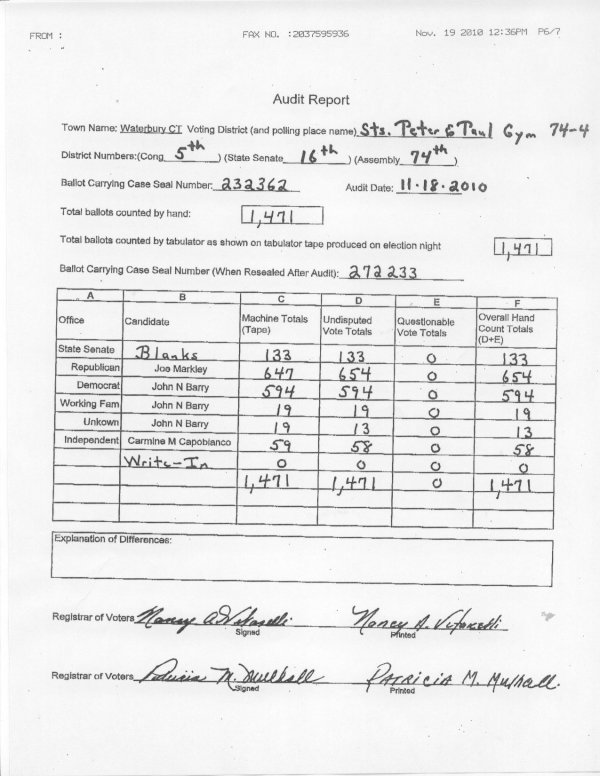 FROM : FAX NO. :2037595936 Nov. 19 2010 12:36PM P6/7
Audit Report
Town Name: Waterbury CT Voting District (and polling place name) Sts. Peter & Paul Gym 74-4
District Numbers:(Cong 5th ) (State Senate 16th ) (Assembly 74th )
Ballot Carrying Case Seal Number: 232362 Audit Date: 11·18·2010
Total ballots counted by hand: 1,471
Total ballots counted by tabulator as shown on tabulator tape produced on election night 1,471
Ballot Carrying Case Seal Number (When Resealed After Audit): 272233
A B C D E F
Office Candidate Machine Totals (Tape) Undisputed Vote Totals Questionable Vote Totals Overall Hand Count Totals (D+E)
State Senate Blanks 133 133 0 133
Republican Joe Markley 647 654 0 654
Democrat John N Barry 594 594 0 594
Working Fam John N Barry 19 19 0 19
Unkown John N Barry 19 13 0 13
Independent Carmine M Capobianco 59 58 0 58
Write-In 0 0 0 0
1,471 1,471 0 1,471
Explanation of Differences:
Registrar of Voters Nancy A. Vitarelli Nancy A. Vitarelli
Signed Printed
Registrar of Voters Patricia M. Mulhall Patricia M. Mulhall
Signed Printed